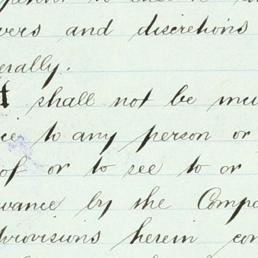 vers and discretions
erally.
t shall not be incu
ce to any person or
of or to see to or
vance by the Compa
provisions herein con